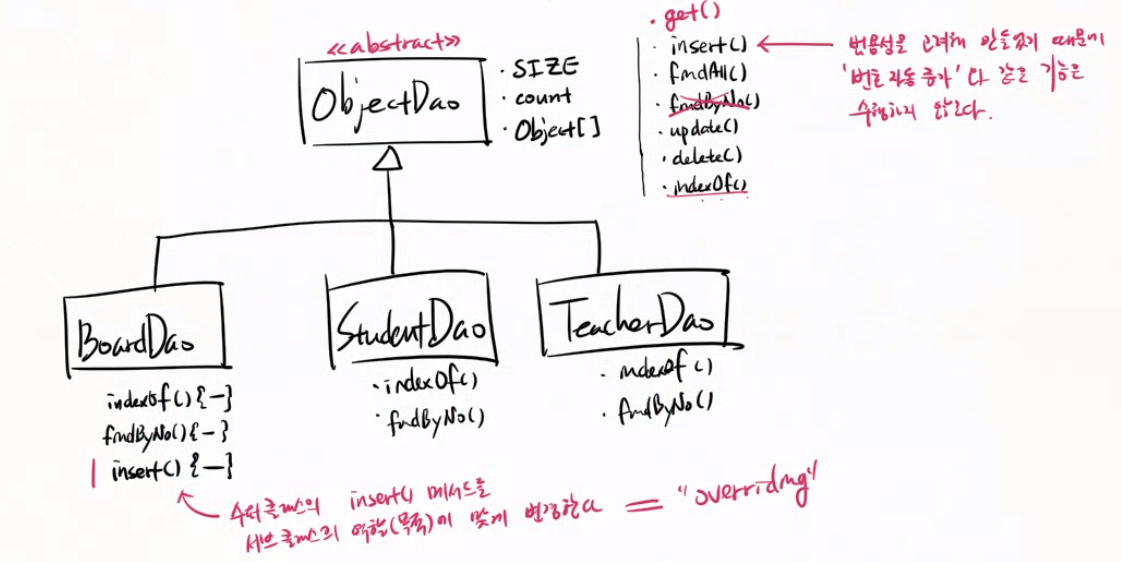 <<abstract>>
ObjectDao
· SIZE
· count
· Object[]
· get()
· insert()
· findAll()
· findByNo()
· update()
· delete()
· indexOf()
범용성을 고려해 만들었기 때문에
'번호 자동 증가'와 같은 기능은
수행하지 않는다.
BoardDao
indexOf() {—}
findByNo() {—}
insert() {—}
StudentDao
· indexOf()
· findByNo()
TeacherDao
· indexOf()
· findByNo()
수퍼 클래스의 insert() 메서드를
서브 클래스의 역할(목적)에 맞게 변경한다 = "overriding"